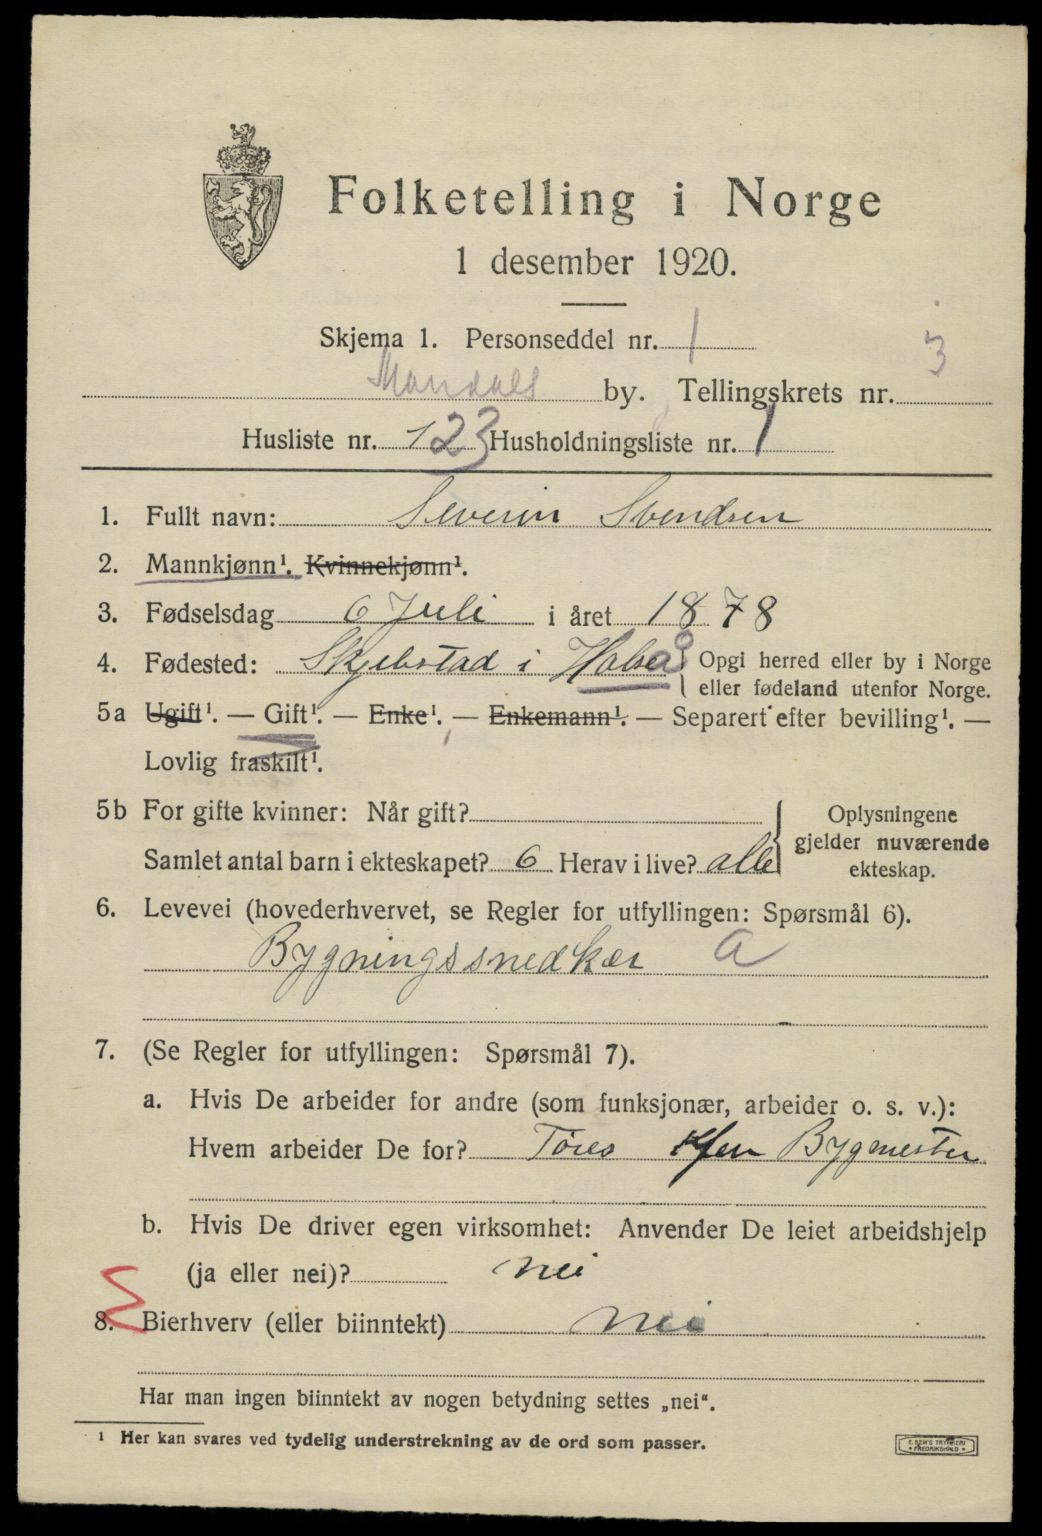 Folketelling i Norge
1 desember 1920.
Skjema 1. Personseddel nr. 1
Mandals by. Tellingskrets nr. 3
Husliste nr. 123 Husholdningsliste nr. 1
1. Fullt navn: Severin Svendsen
2. Mannkjønn¹. Kvinnekjønn¹.
3. Fødselsdag 6 Juli i året 1878
4. Fødested: Skjebstad i Halså Opgi herred eller by i Norge
eller fødeland utenfor Norge.
5a Ugift¹. — Gift¹. — Enke¹. — Enkemann¹. — Separert efter bevilling¹. —
Lovlig fraskilt¹.
5b For gifte kvinner: Når gift?
Samlet antal barn i ekteskapet? 6 Herav i live? alle
Oplysningene
gjelder nuværende
ekteskap.
6. Levevei (hovederhvervet, se Regler for utfyllingen: Spørsmål 6).
Bygningssnedker a
7. (Se Regler for utfyllingen: Spørsmål 7).
a. Hvis De arbeider for andre (som funksjonær, arbeider o. s. v.):
Hvem arbeider De for? Tøres Bygmester
b. Hvis De driver egen virksomhet: Anvender De leiet arbeidshjelp
(ja eller nei)? nei
8. Bierhverv (eller biinntekt) nei
Har man ingen biinntekt av nogen betydning settes „nei“.
¹ Her kan svares ved tydelig understrekning av de ord som passer.